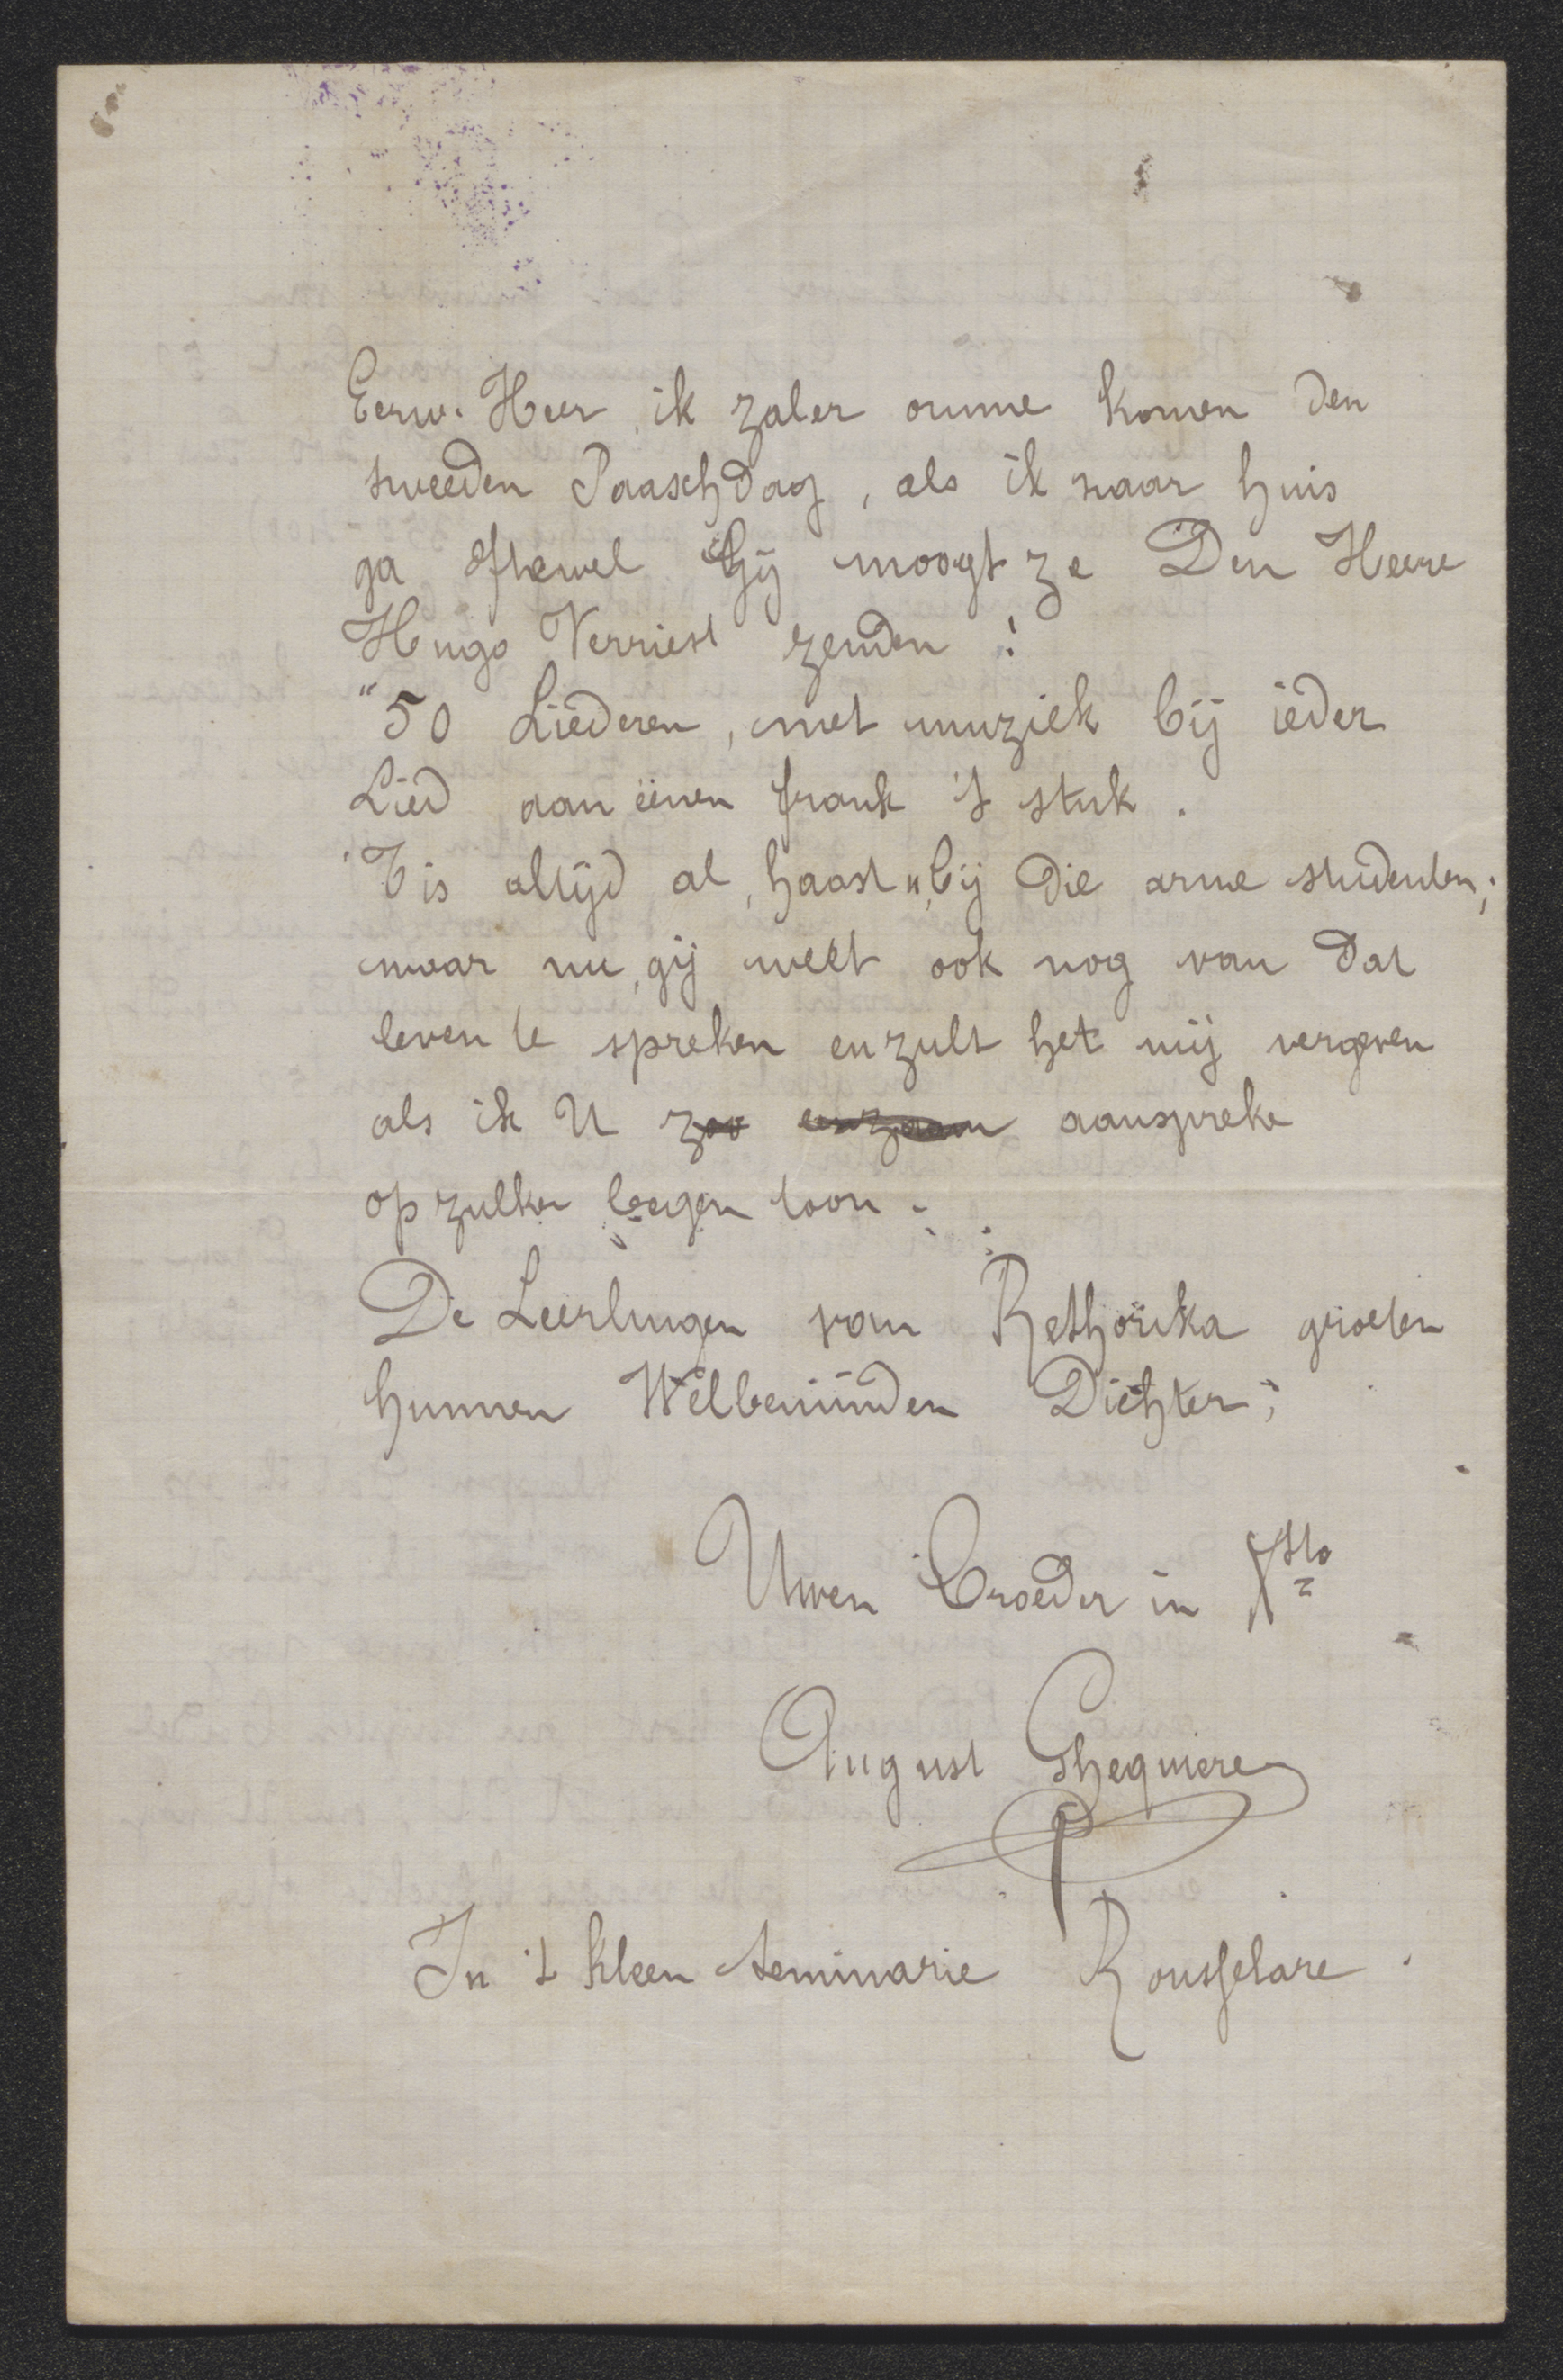 Eerw. Heer, ik zaler omme komen den
tweeden Paaschdag, als ik naar huis
ga oftewel Gij moogt ze Den Heere
Hugo Verriest zenden !
"50 Liederen, met muziek bij ieder
Lied aan eenen frank 't stuk.
't is altijd al "haast" bij die arme studenten;
maar nu, gij weet ook nog van dat
leven te spreken en zult het mij vergeven
als ik U zoo aanspreke
op zulken leegen toon.
De Leerlingen van Rethorika groeten
hunnen Welbeminden Dichter;
Uwen Broeder in Xsto
August Ghequiere
In 't kleen Seminarie Rousselare.